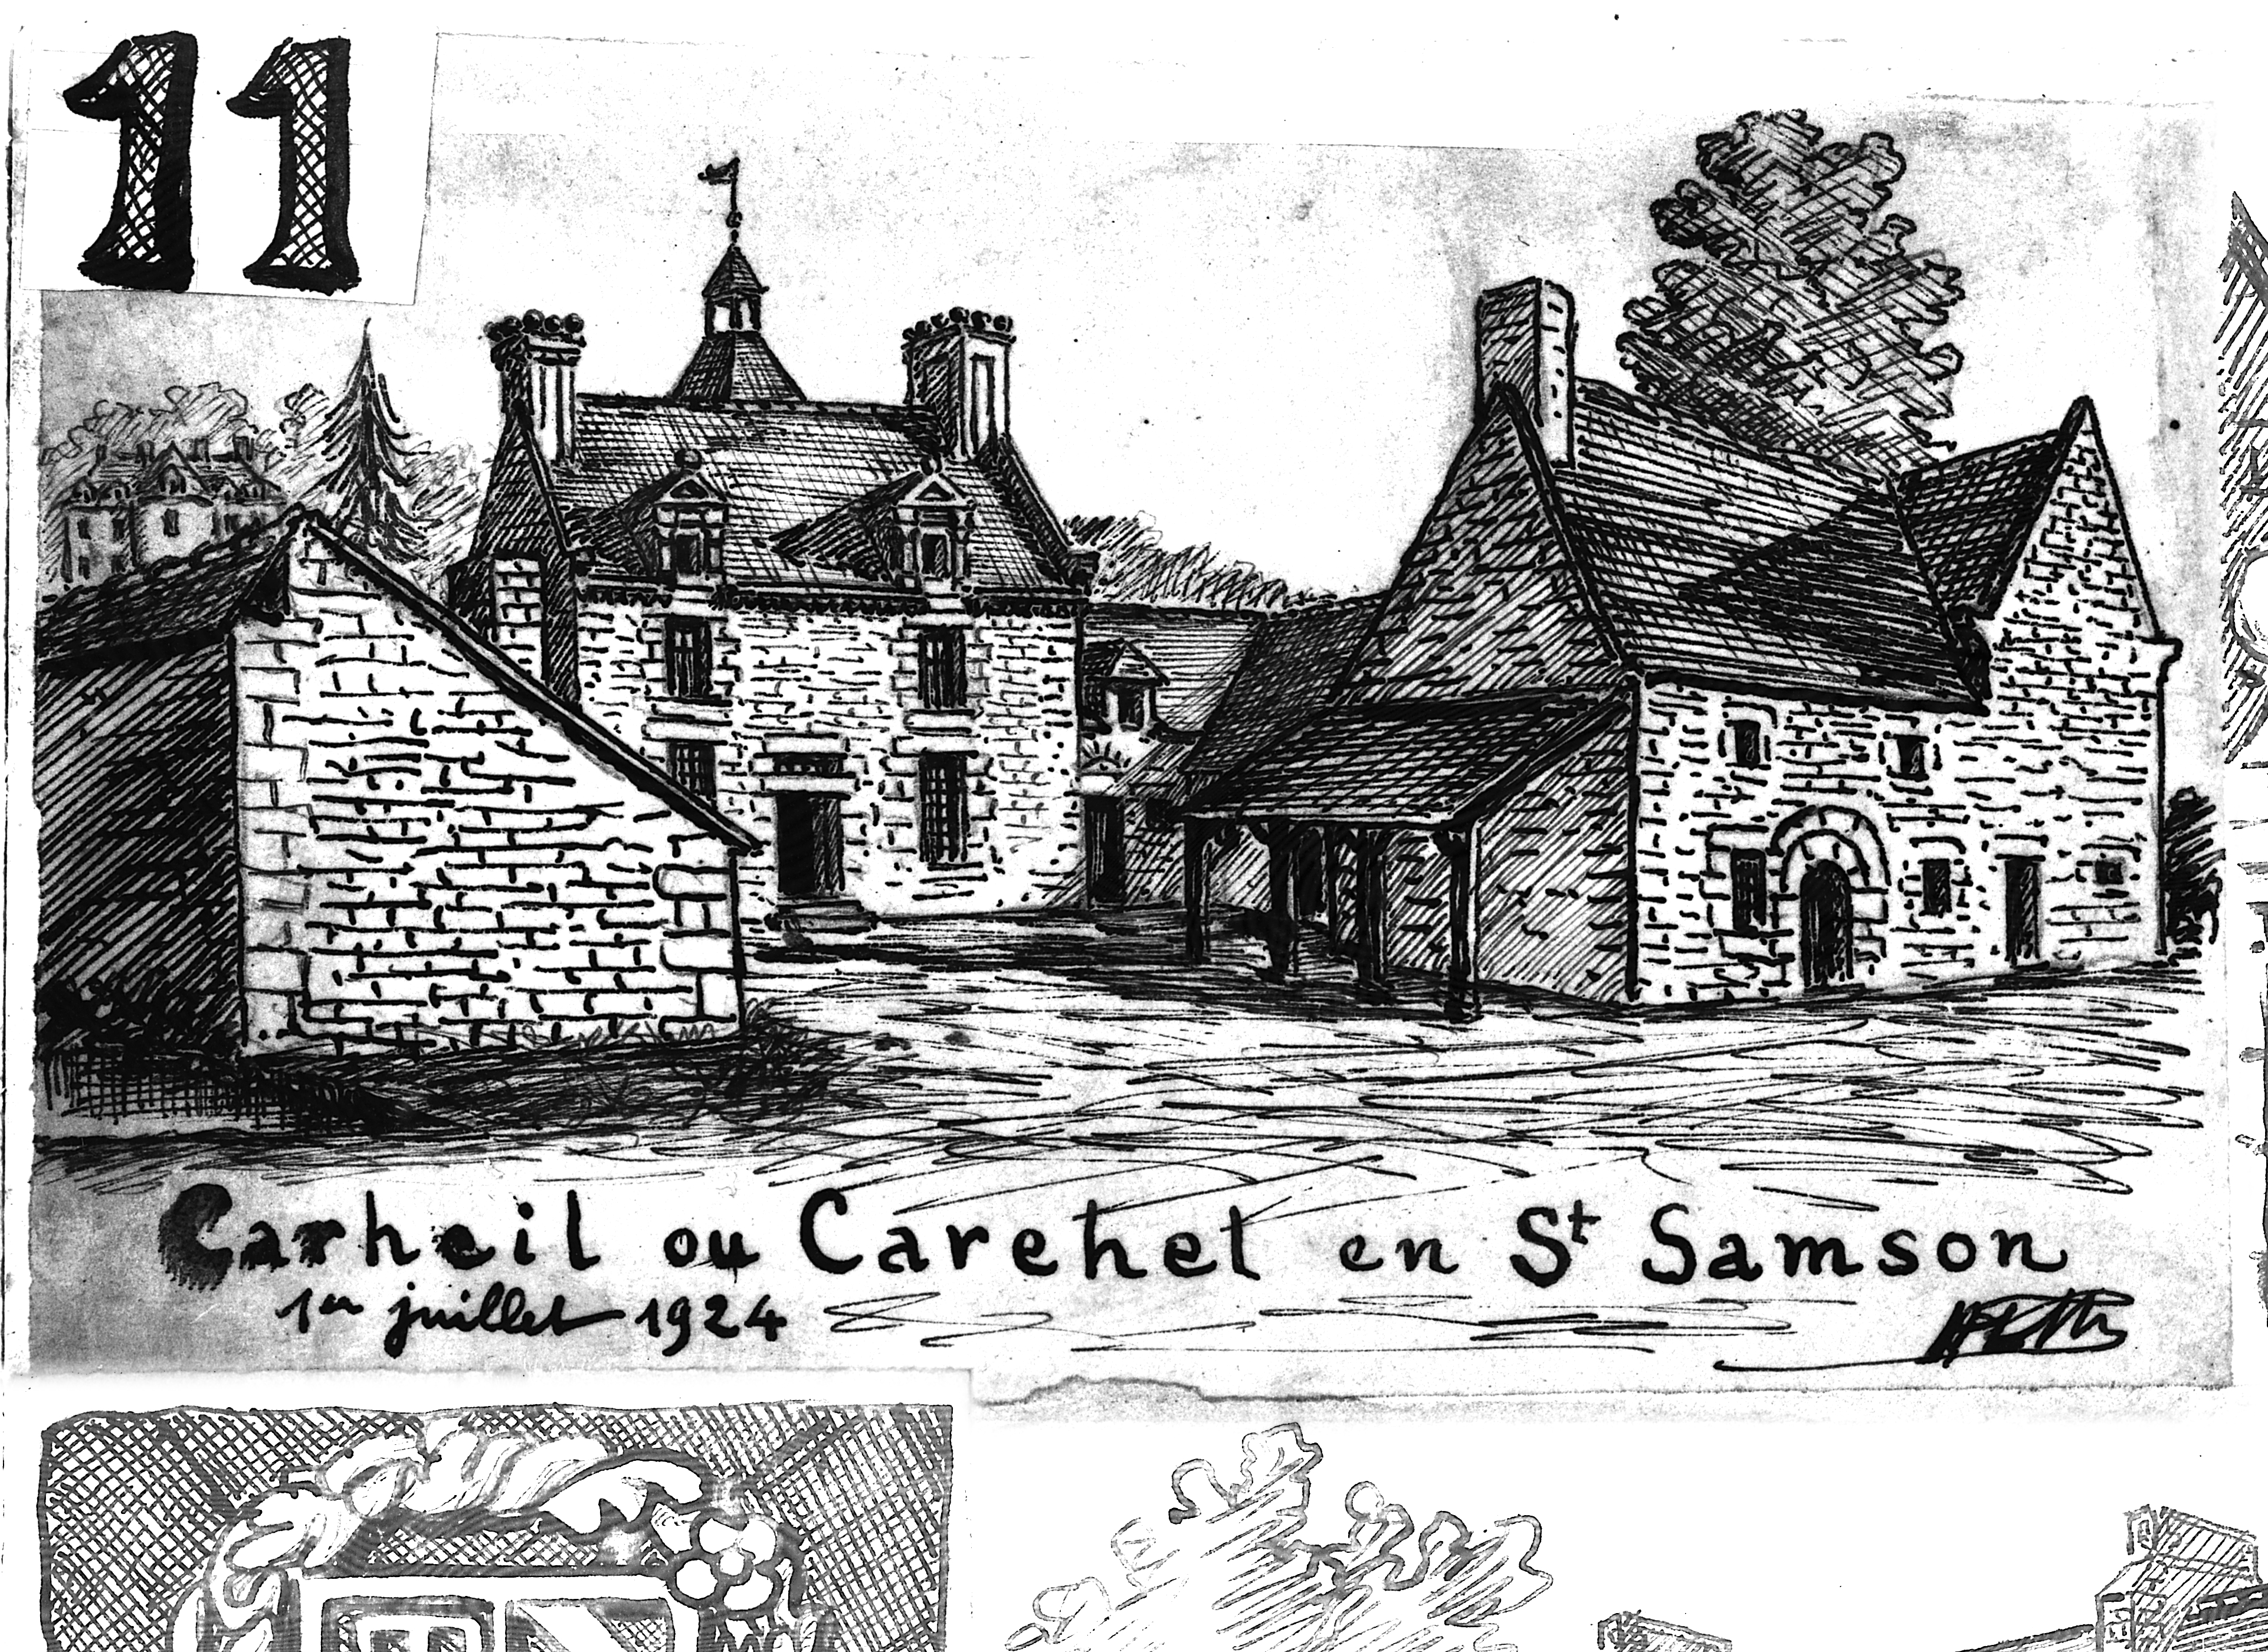 11
Carheil ou Carehel en St Samson
1er juillet 1924